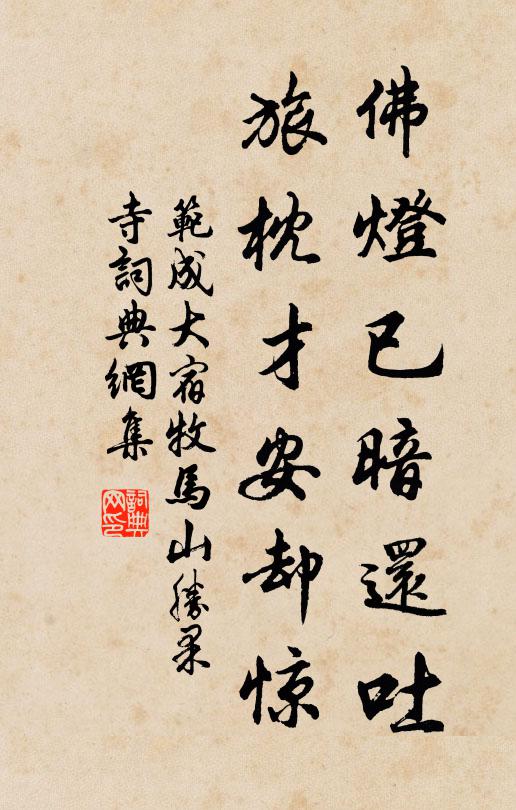 佛燈已暗還吐
旅枕才安却惊
範成大宿牧馬山勝果
寺詞典網集
詞典
网印